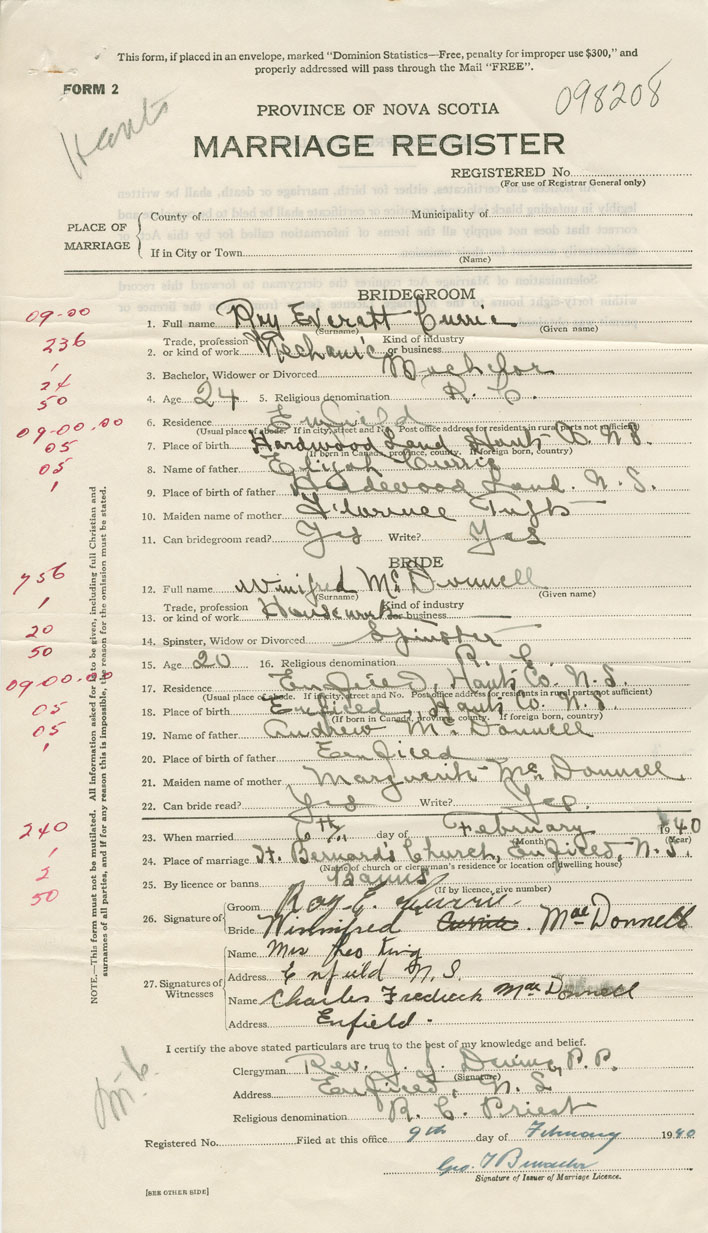 This form, if placed in an envelope, marked "Dominion Statistics—Free, penalty for improper use $300," and
properly addressed will pass through the Mail "FREE".
FORM 2
Hants
098208
PROVINCE OF NOVA SCOTIA
MARRIAGE REGISTER
REGISTERED No.
(For use of Registrar General only)
PLACE OF MARRIAGE
County of
Municipality of
If in City or Town
(Name)
BRIDEGROOM
09-00
1. Full name Roy Everatt Currie
(Surname) (Given name)
236
Trade, profession Kind of industry
2. or kind of work Mechanic or business
1
3. Bachelor, Widower or Divorced Bachelor
24
4. Age 24 5. Religious denomination R. C.
50
6. Residence Enfield
(Usual place of abode. If in city, street and No. Post office address for residents in rural parts not sufficient)
09-00.00
7. Place of birth Hardwood Land Hants Co. N.S.
(If born in Canada, province, county. If foreign born, country)
05
8. Name of father Elijah Currie
05
9. Place of birth of father Hardewood Land. N.S.
1
10. Maiden name of mother Florence Tufts
11. Can bridegroom read? Yes Write? Yes
BRIDE
756
12. Full name Winifred Mc Donnell
(Surname) (Given name)
1
Trade, profession Kind of industry
13. or kind of work Housework or business
20
14. Spinster, Widow or Divorced Spinster
50
15. Age 20 16. Religious denomination R. C.
09-00.00
17. Residence Enfield, Hants Co. N.S.
(Usual place of abode. If in city, street and No. Post office address for residents in rural parts not sufficient)
05
18. Place of birth Enfield, Hants Co. N.S.
(If born in Canada, province county. If foreign born, country)
05
19. Name of father Andrew Mc Donnell
1
20. Place of birth of father Enfield
21. Maiden name of mother Marguerite Mc Donnell
22. Can bride read? Yes Write? Yes.
240
23. When married 6th day of February 1940
(Month) (Year)
1
24. Place of marriage St. Bernard's Church, Enfield, N.S.
(Name of church or clergyman's residence or location of dwelling house)
2
25. By licence or banns Banns
(If by licence, give number)
50
26. Signature of
Groom Roy E. Currie
Bride Winnifred MacDonnell
27. Signatures of Witnesses
Name Mrs Leo King
Address Enfield N.S.
Name Charles Fredrick MacDonnell
Address Enfield.
NOTE.—This form must not be mutilated. All information asked for is to be given, including full Christian and
surnames of all parties, and if for any reason this is impossible, the reason for the omission must be stated.
I certify the above stated particulars are true to the best of my knowledge and belief.
Clergyman Rev. J. J. Devine, P.P.
(Signature)
Address Enfield, N.S.
Religious denomination R. C. Priest
Registered No. Filed at this office 9th day of February 1940
Geo. T
Signature of Issuer of Marriage Licence.
[SEE OTHER SIDE]